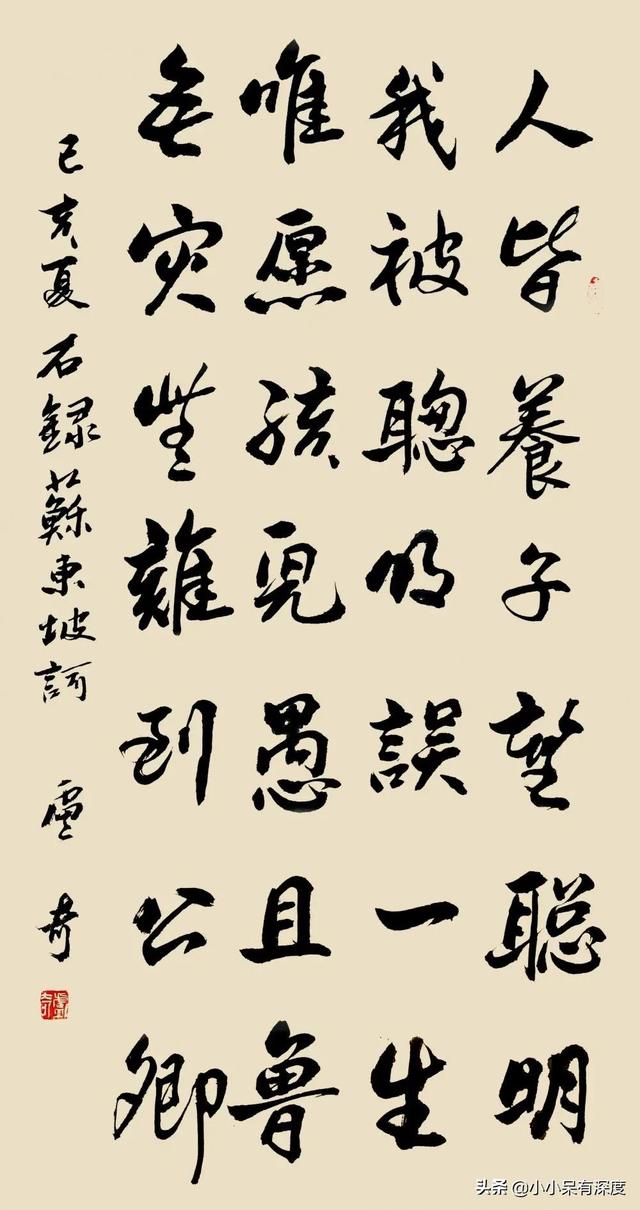 人皆養子望聡明
我被聰明誤一生
唯愿孩兒愚且魯
無灾無難到公卿
己亥夏石録蘇東坡詞 盧奇
头条 @小小呆有深度